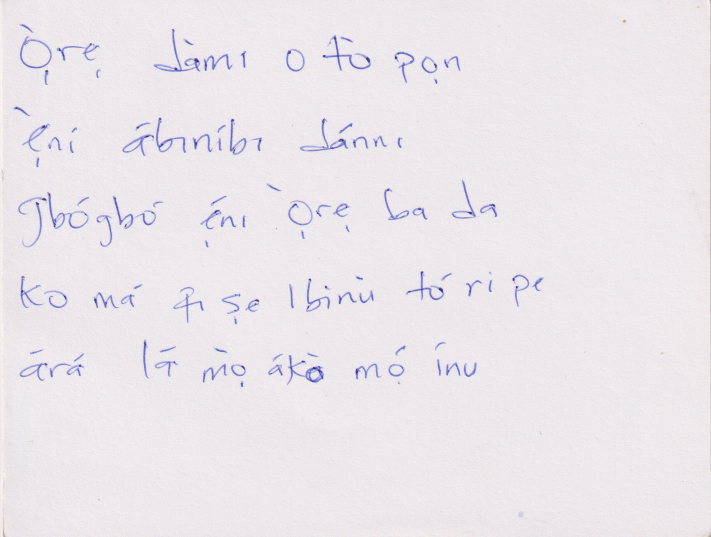 Ọ̀rẹ dàmı o tò pọn
Ẹ̀ní ábıníbı dánnı
Gbógbó ẹ́nı Ọ̀rẹ ba da
ko má fı ṣe Ibinù tó ri pe
árá lá mọ̀ ákò mọ́ ínu